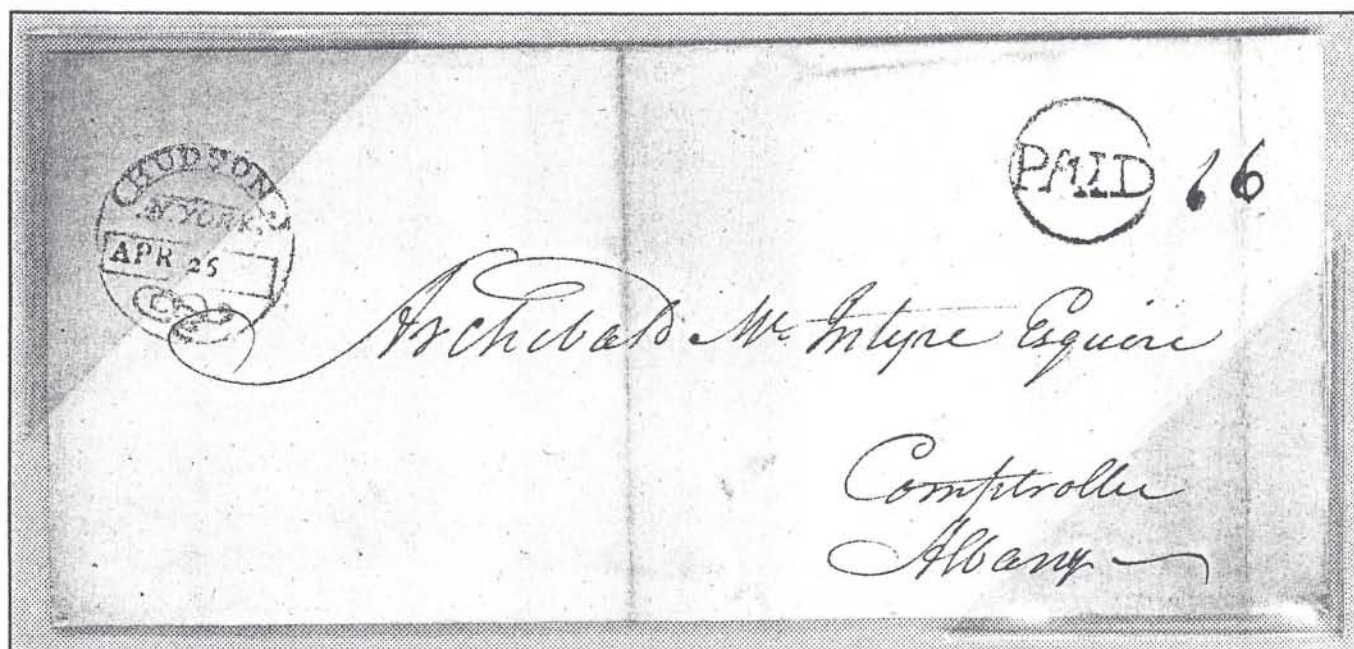 HUDSON
N YORK.
APR 25
PAID 6
Archibald Mc Intyre Esquire
Comptroller
Albany